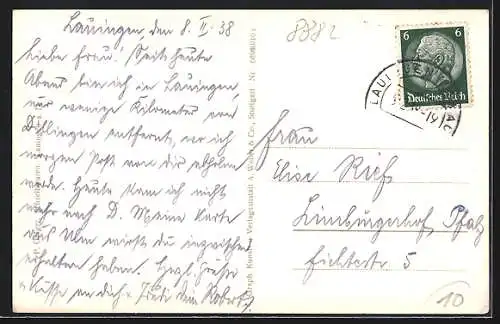 Lauingen, den 8. II. 38
Liebe Frau! Seit heute
Abend bin ich in Lauingen,
nur wenige Kilometer von
Dillingen entfernt, wo ich
morgen Post von dir abholen
werde. Heute kam ich nicht
mehr nach D. Meine Karte
aus Ulm wirst du inzwischen
erhalten haben. Herzl. Grüße
+ Küsse an dich + Friedi dein Robert
8882
6 6
Deutsches Reich
Frau
Elise Rief
Limburgerhof, Pfalz
Fichtestr. 5
10